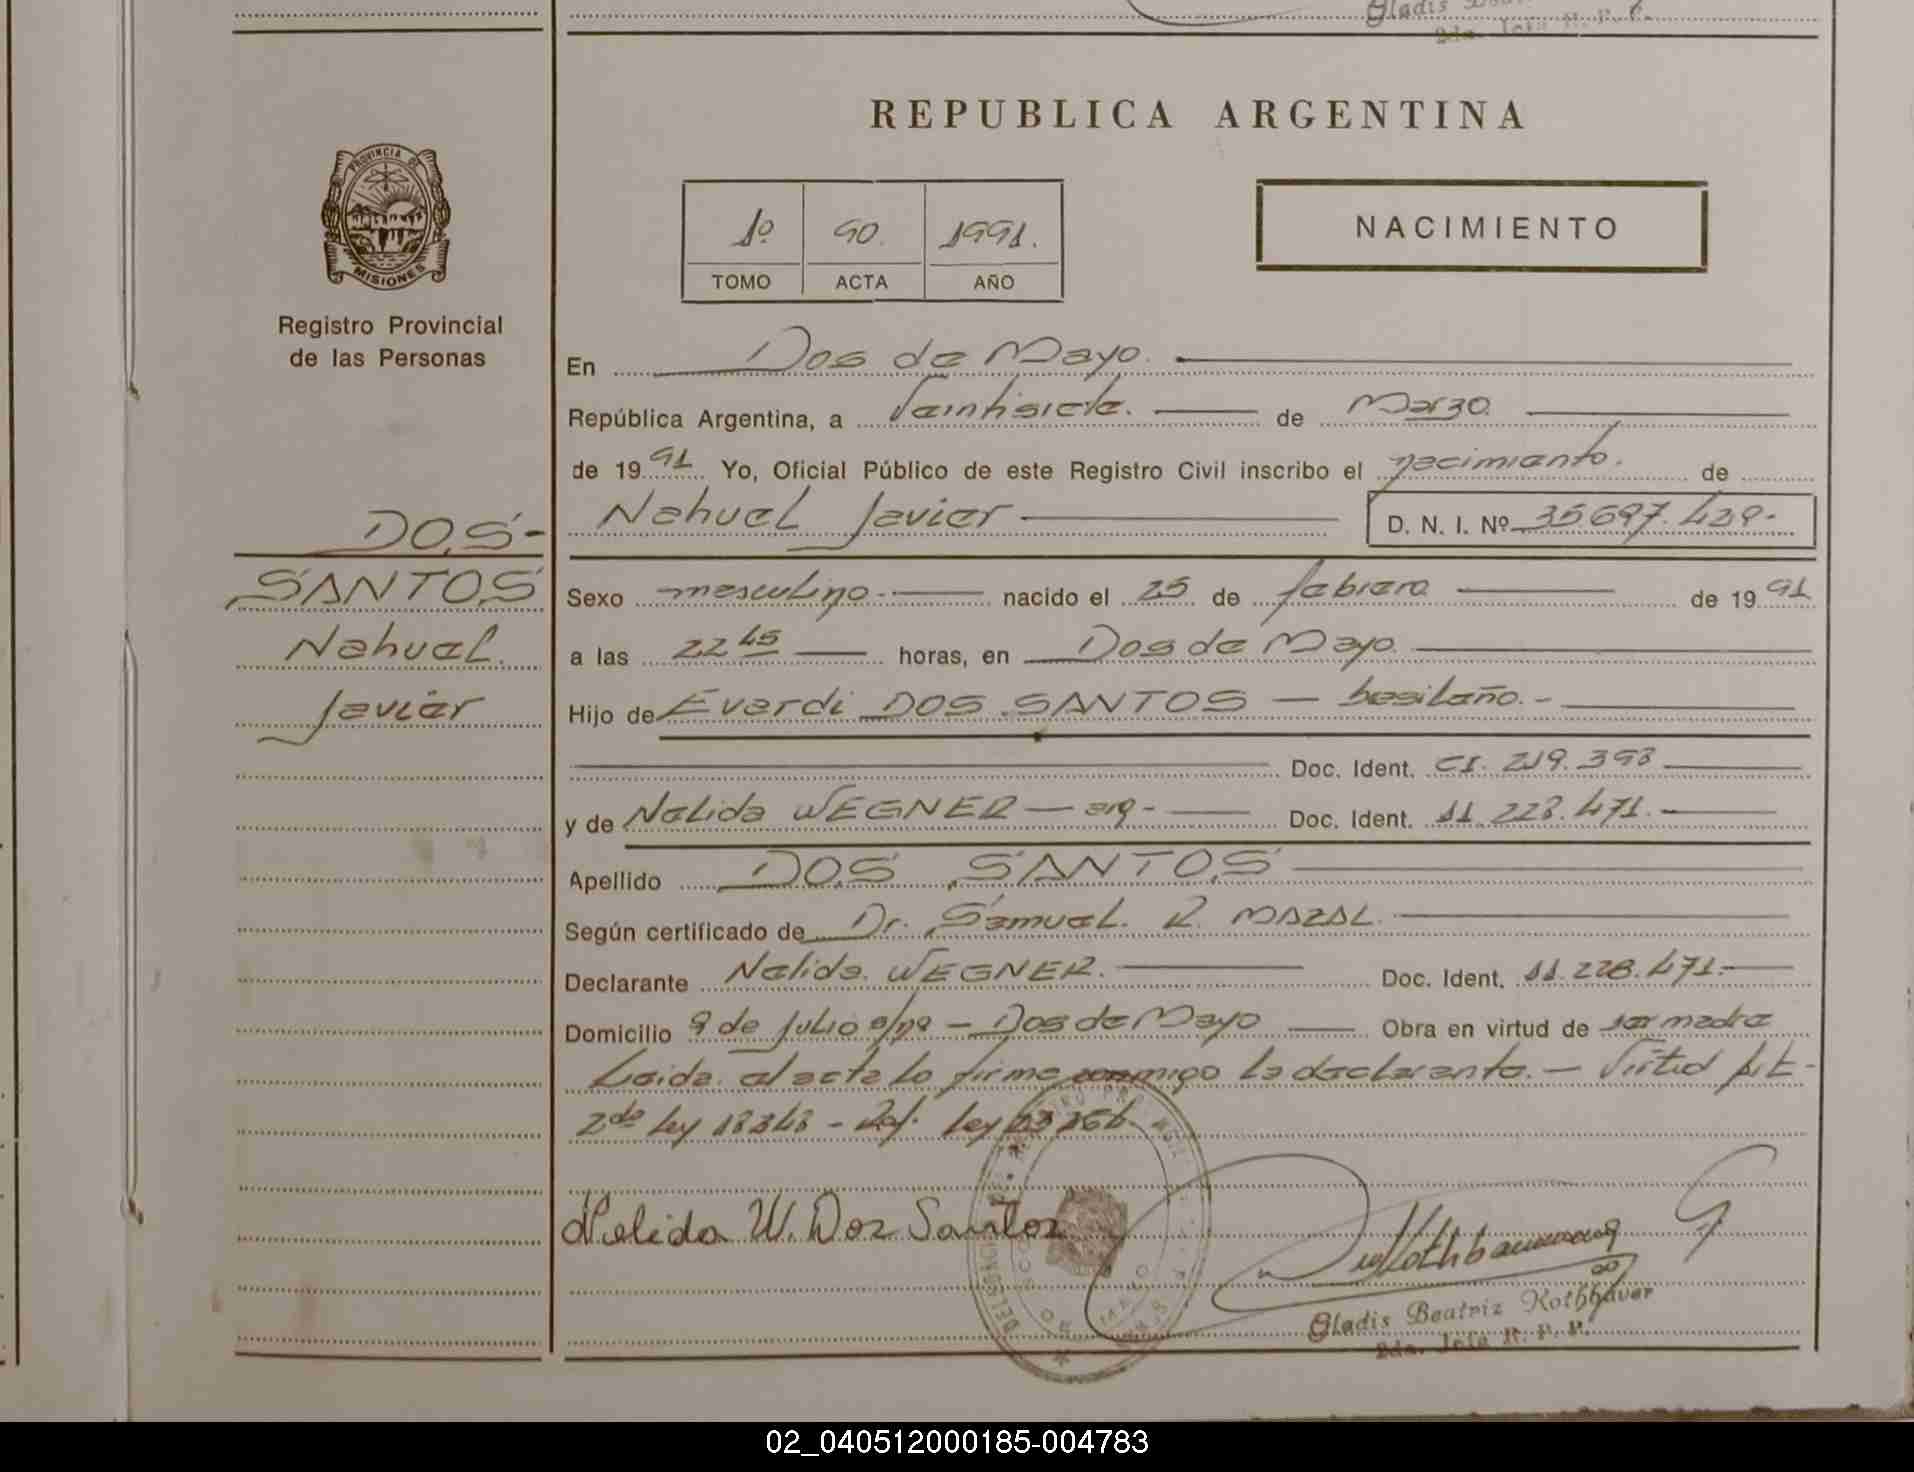 Gladis
2da. Jefa R. P. P.
REPUBLICA ARGENTINA
PROVINCIA DE
MISIONES
Registro Provincial
de las Personas
1º 90. 1991.
TOMO ACTA AÑO
NACIMIENTO
En Dos de Mayo.
República Argentina, a Veintisiete. de Marzo.
de 1991. Yo, Oficial Público de este Registro Civil inscribo el nacimiento. de
Nahuel Javier D. N. I. Nº 35.697.439.-
DOS-
SANTOS
Nahuel.
Javier
Sexo masculino.- nacido el 25 de febrero de 1991
a las 22 45 horas, en Dos de Mayo.
Hijo de Everdi DOS SANTOS - brasileño.-
Doc. Ident. CI. 219.393
y de Nelida WEGNER - arg- Doc. Ident. 11.228.471.
Apellido DOS SANTOS
Según certificado de Dr. Samuel. R. MAZAL.
Declarante Nelida. WEGNER. Doc. Ident. 11.228.471.-
Domicilio 9 de Julio s/nº - Dos de Mayo Obra en virtud de ser madre
Leida. el acta lo firma conmigo la declarante. - Virtud Art-
2do Ley 18248 - Ley 23264.
Nelida W. Dos Santos
Gladis Beatriz Rothbaver
2da. Jefa R. P. P.
02_040512000185-004783